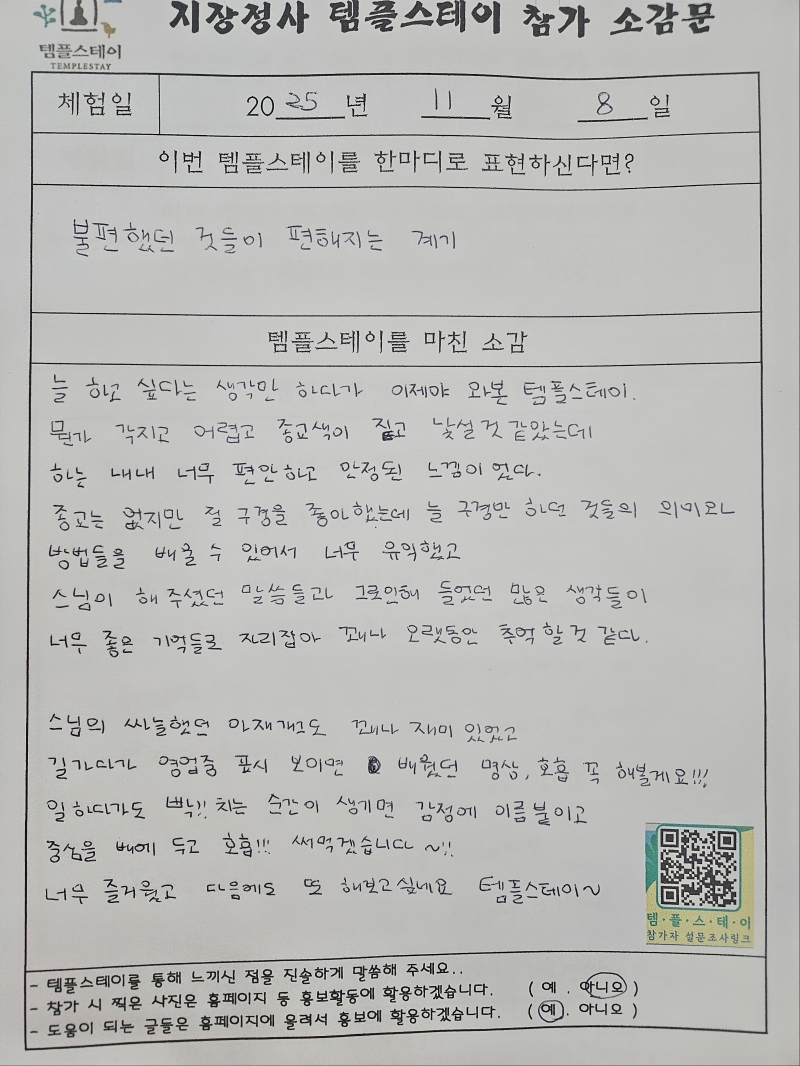 지장정사 템플스테이 참가 소감문
템플스테이
TEMPLESTAY
체험일 2025년 11월 8일
이번 템플스테이를 한마디로 표현하신다면?
불편했던 것들이 편해지는 계기
템플스테이를 마친 소감
늘 하고 싶다는 생각만 하다가 이제야 와본 템플스테이.
뭔가 각지고 어렵고 종교색이 짙고 낯설것 같았는데
하는 내내 너무 편안하고 안정된 느낌이었다.
종교는 없지만 절 구경을 좋아했는데 늘 구경만 하던 것들의 의미와
방법들을 배울 수 있어서 너무 유익했고
스님이 해주셨던 말씀들과 그로인해 들었던 많은 생각들이
너무 좋은 기억들로 자리잡아 꽤나 오랫동안 추억할것 같다.
스님의 싸늘했던 아재개그도 꽤나 재미있었고
길가다가 영업중 표시 보이면 배웠던 명상, 호흡 꼭 해볼게요!!!
일하다가도 빡!! 치는 순간이 생기면 감정에 이름붙이고
중심을 배에 두고 호흡!!! 써먹겠습니다~!!
너무 즐거웠고 다음에도 또 해보고싶네요 템플스테이~
템·플·스·테·이
참가자 설문조사링크
- 템플스테이를 통해 느끼신 점을 진솔하게 말씀해 주세요..
- 참가 시 찍은 사진은 홈페이지 등 홍보활동에 활용하겠습니다. ( 예 . 아니오 )
- 도움이 되는 글들은 홈페이지에 올려서 홍보에 활용하겠습니다. ( 예 . 아니오 )